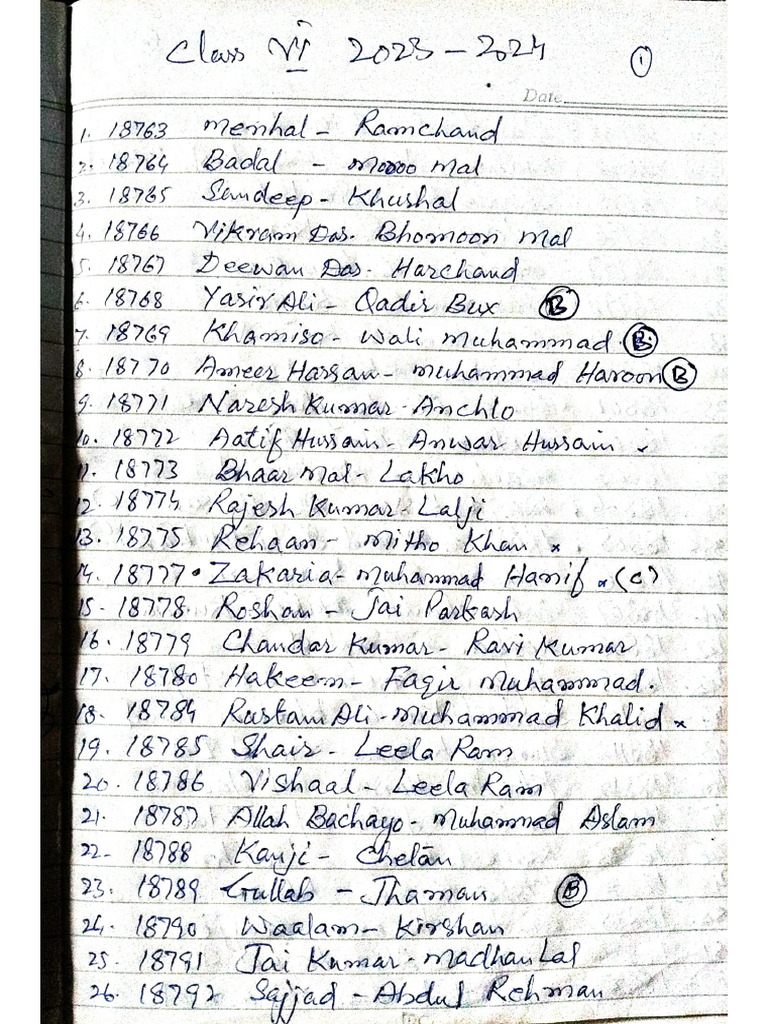 Class VI 2023-2024 1
Date
1. 18763 Memhal - Ramchand
2. 18764 Badal - Moroo Mal
3. 18765 Sandeep - Khushal
4. 18766 Vikram Das. Bhomoon Mal
5. 18767 Deewan Das. Harchand
6. 18768 Yasir Ali - Qadir Bux B
7. 18769 Khamiso - Wali Muhammad. B
8. 18770 Ameer Hassan - Muhammad Haroon B
9. 18771 Naresh Kumar - Anchlo
10. 18772 Aatif Hussain - Anwar Hussain
11. 18773 Bhaar Mal - Lakho
12. 18774 Rajesh Kumar - Lalji
13. 18775 Rehaan - Mitho Khan x
14. 18777. Zakaria - Muhammad Hanif x (C)
15 - 18778. Roshan - Jai Parkash
16. 18779 Chandar Kumar - Ravi Kumar
17. 18780 Hakeem - Faqir Muhammad.
18. 18784 Rustam Ali - Muhammad Khalid x
19. 18785 Shair - Leela Ram
20. 18786 Vishaal - Leela Ram
21. 18787 Allah Bachayo - Muhammad Aslam
22 - 18788 Kanji - Chetan
23. 18789 Gullab - Jhaman B
24. 18790 Waalam - Kirshan
25. 18791 Jai Kumar - Madhan Lal
26. 18792 Sajjad - Abdul Rehman